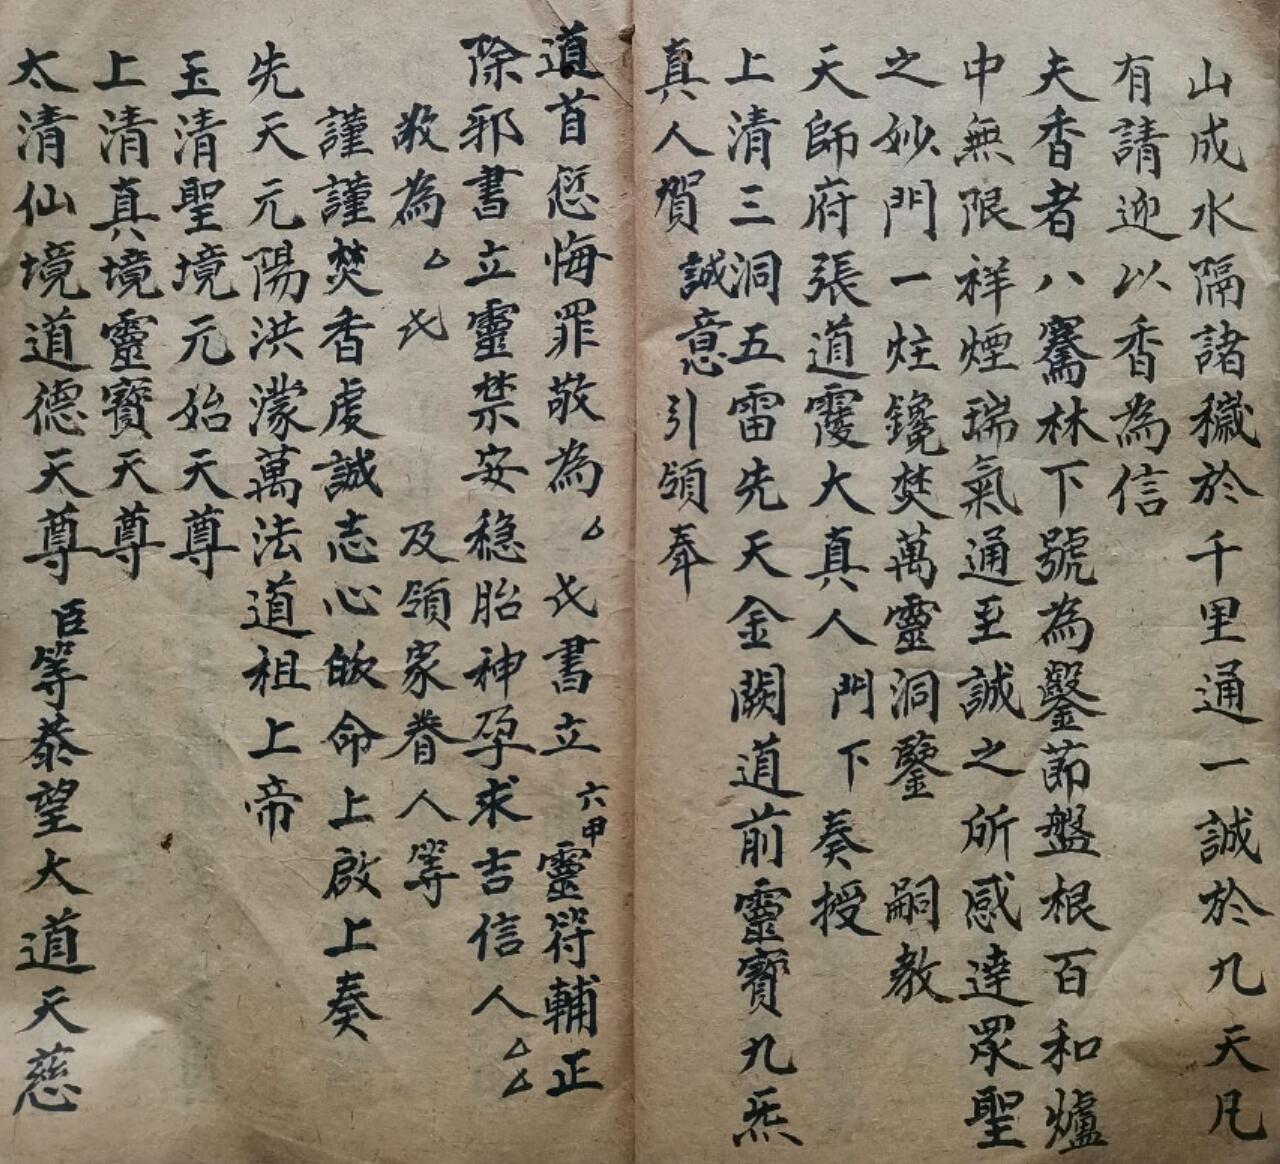 山成水隔諸穢於千里通一誠於九天凡
有請迎以香為信
夫香者八騫林下號為鑿節盤根百和爐
中無限祥煙瑞氣通至誠之所感達眾聖
之妙門一炷纔焚萬靈洞鑒 嗣教
天師府張道靈大真人門下奏授
上清三洞五雷先天金闕道前靈寶九炁
真人賀 誠意 引領奉
道首愆悔罪敬為厶氏書立六甲靈符輔正
除邪書立靈禁安穩胎神孕求吉信人厶厶
敬為厶氏 及領家眷人等
謹謹焚香虔誠志心皈命上啟上奏
先天元陽洪濛萬法道祖上帝
玉清聖境元始天尊
上清真境靈寶天尊
太清仙境道德天尊 臣等恭望大道天慈